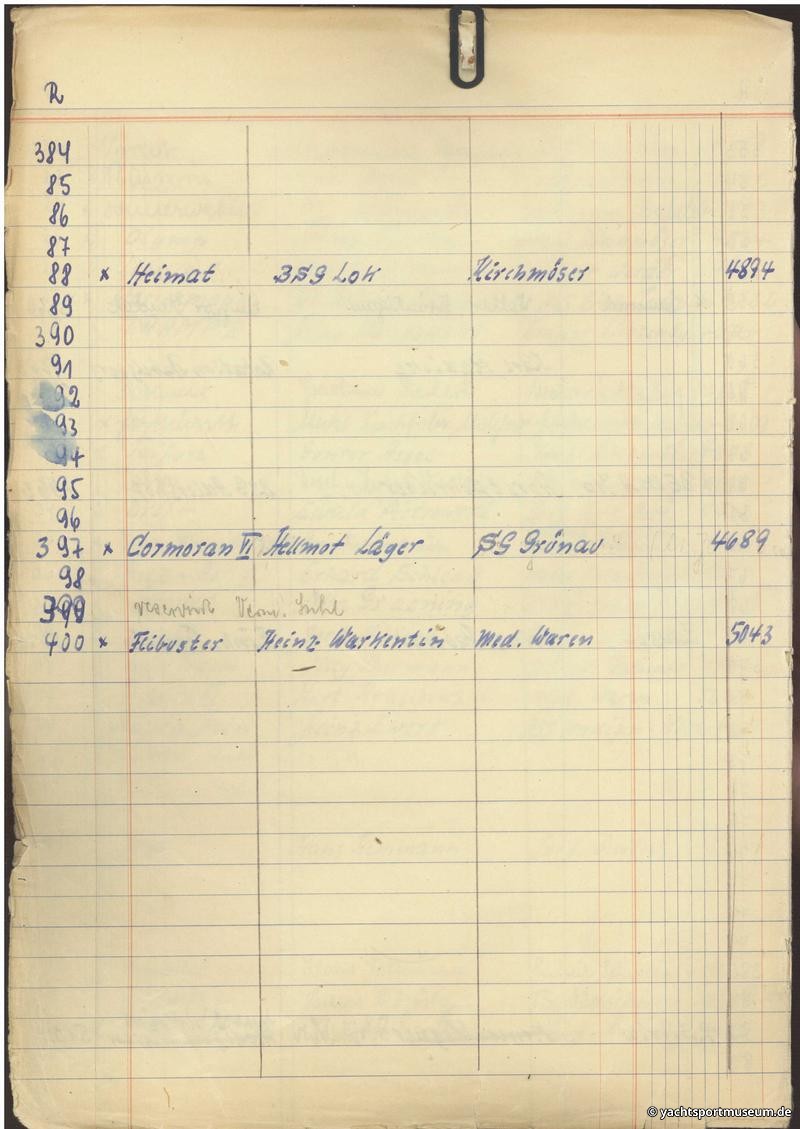 R
384
85
86
87
88 x Heimat BSG Lok Kirchmöser 4894
89
390
91
92
93
94
95
96
397 x Cormoran VI Hellmot Läger SG Grönau 4689
98
399 reserviert
400 x Flibuster Heinz Warkentin Med. Waren 5043
© yachtsportmuseum.de